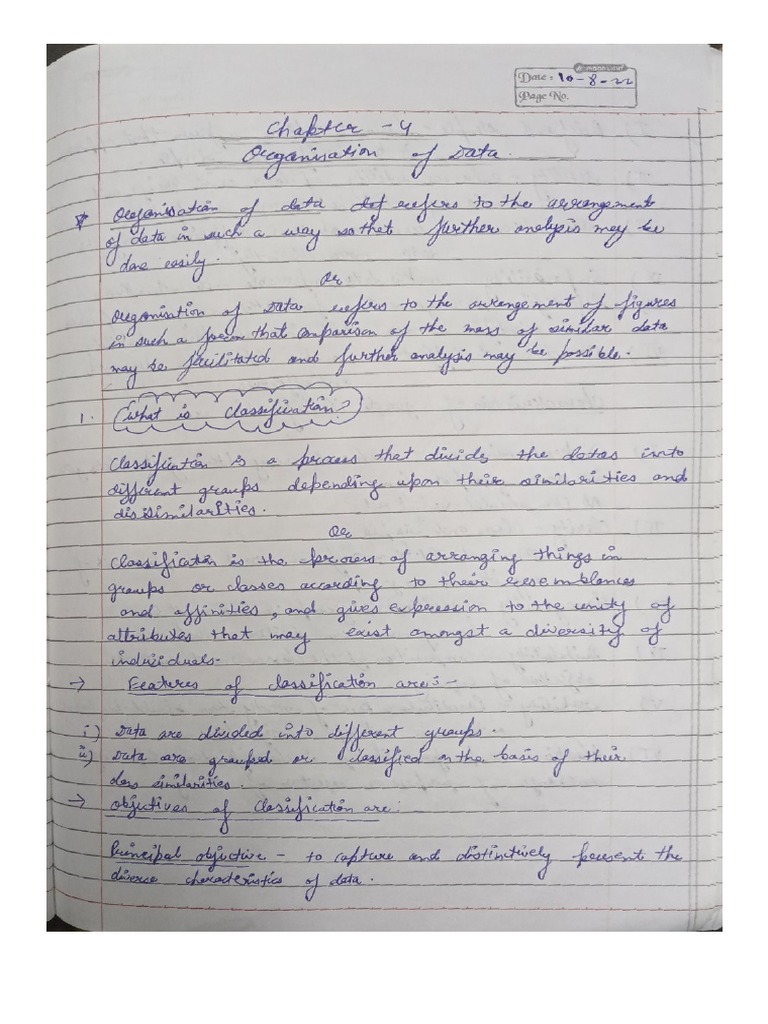 Date: 10-8-22
Page No.
Chapter - 4
Organisation of Data.
Organisation of data def refers to the arrangement
of data in such a way so that further analysis may be
done easily.
Or
Organisation of Data refers to the arrangement of figures
in such a form that comparison of the mass of similar data
may be facilitated and further analysis may be possible.
1. What is Classification?
Classification is a process that divides the datas into
different groups depending upon their similarities and
dissimilarities.
Or
Classification is the process of arranging things in
groups or classes according to their resemblances
and affinities, and gives expression to the unity of
attributes that may exist amongst a diversity of
individuals.
→ Features of classification are:-
i) Data are divided into different groups.
ii) Data are grouped or classified on the basis of their
class similarities.
→ Objectives of Classification are:
Principal objective - to capture and distinctively present the
diverse characteristics of data.